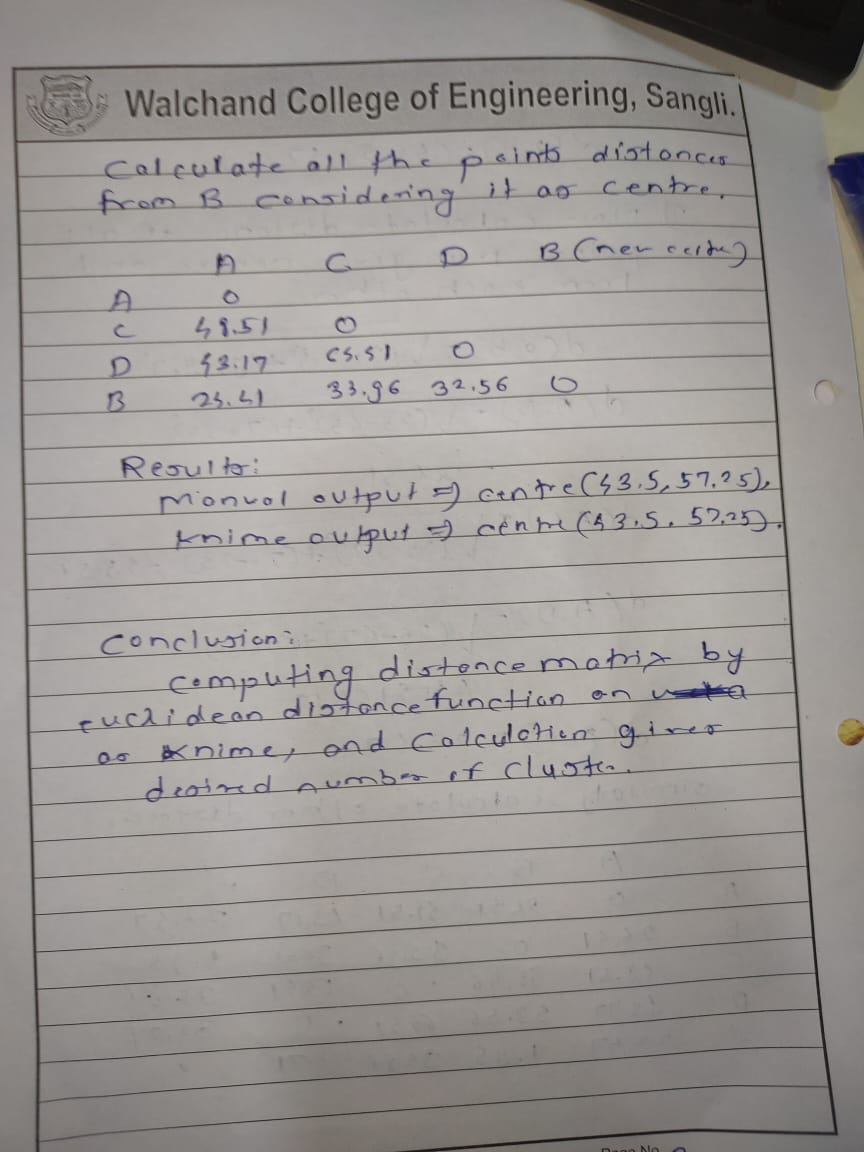 Walchand College of Engineering, Sangli.
Calculate all the points distances
from B considering it as centre.
A C D B (new centre)
A 0
C 49.51 0
D 43.17 65.51 0
B 25.41 33.96 32.56 0
Results:
Manual output => centre (43.5, 57.25),
Knime output => centre (43.5, 57.25).
Conclusion:
Computing distance matrix by
euclidean distance function on
as Knime, and Calculation gives
desired number of cluster.
Page No.